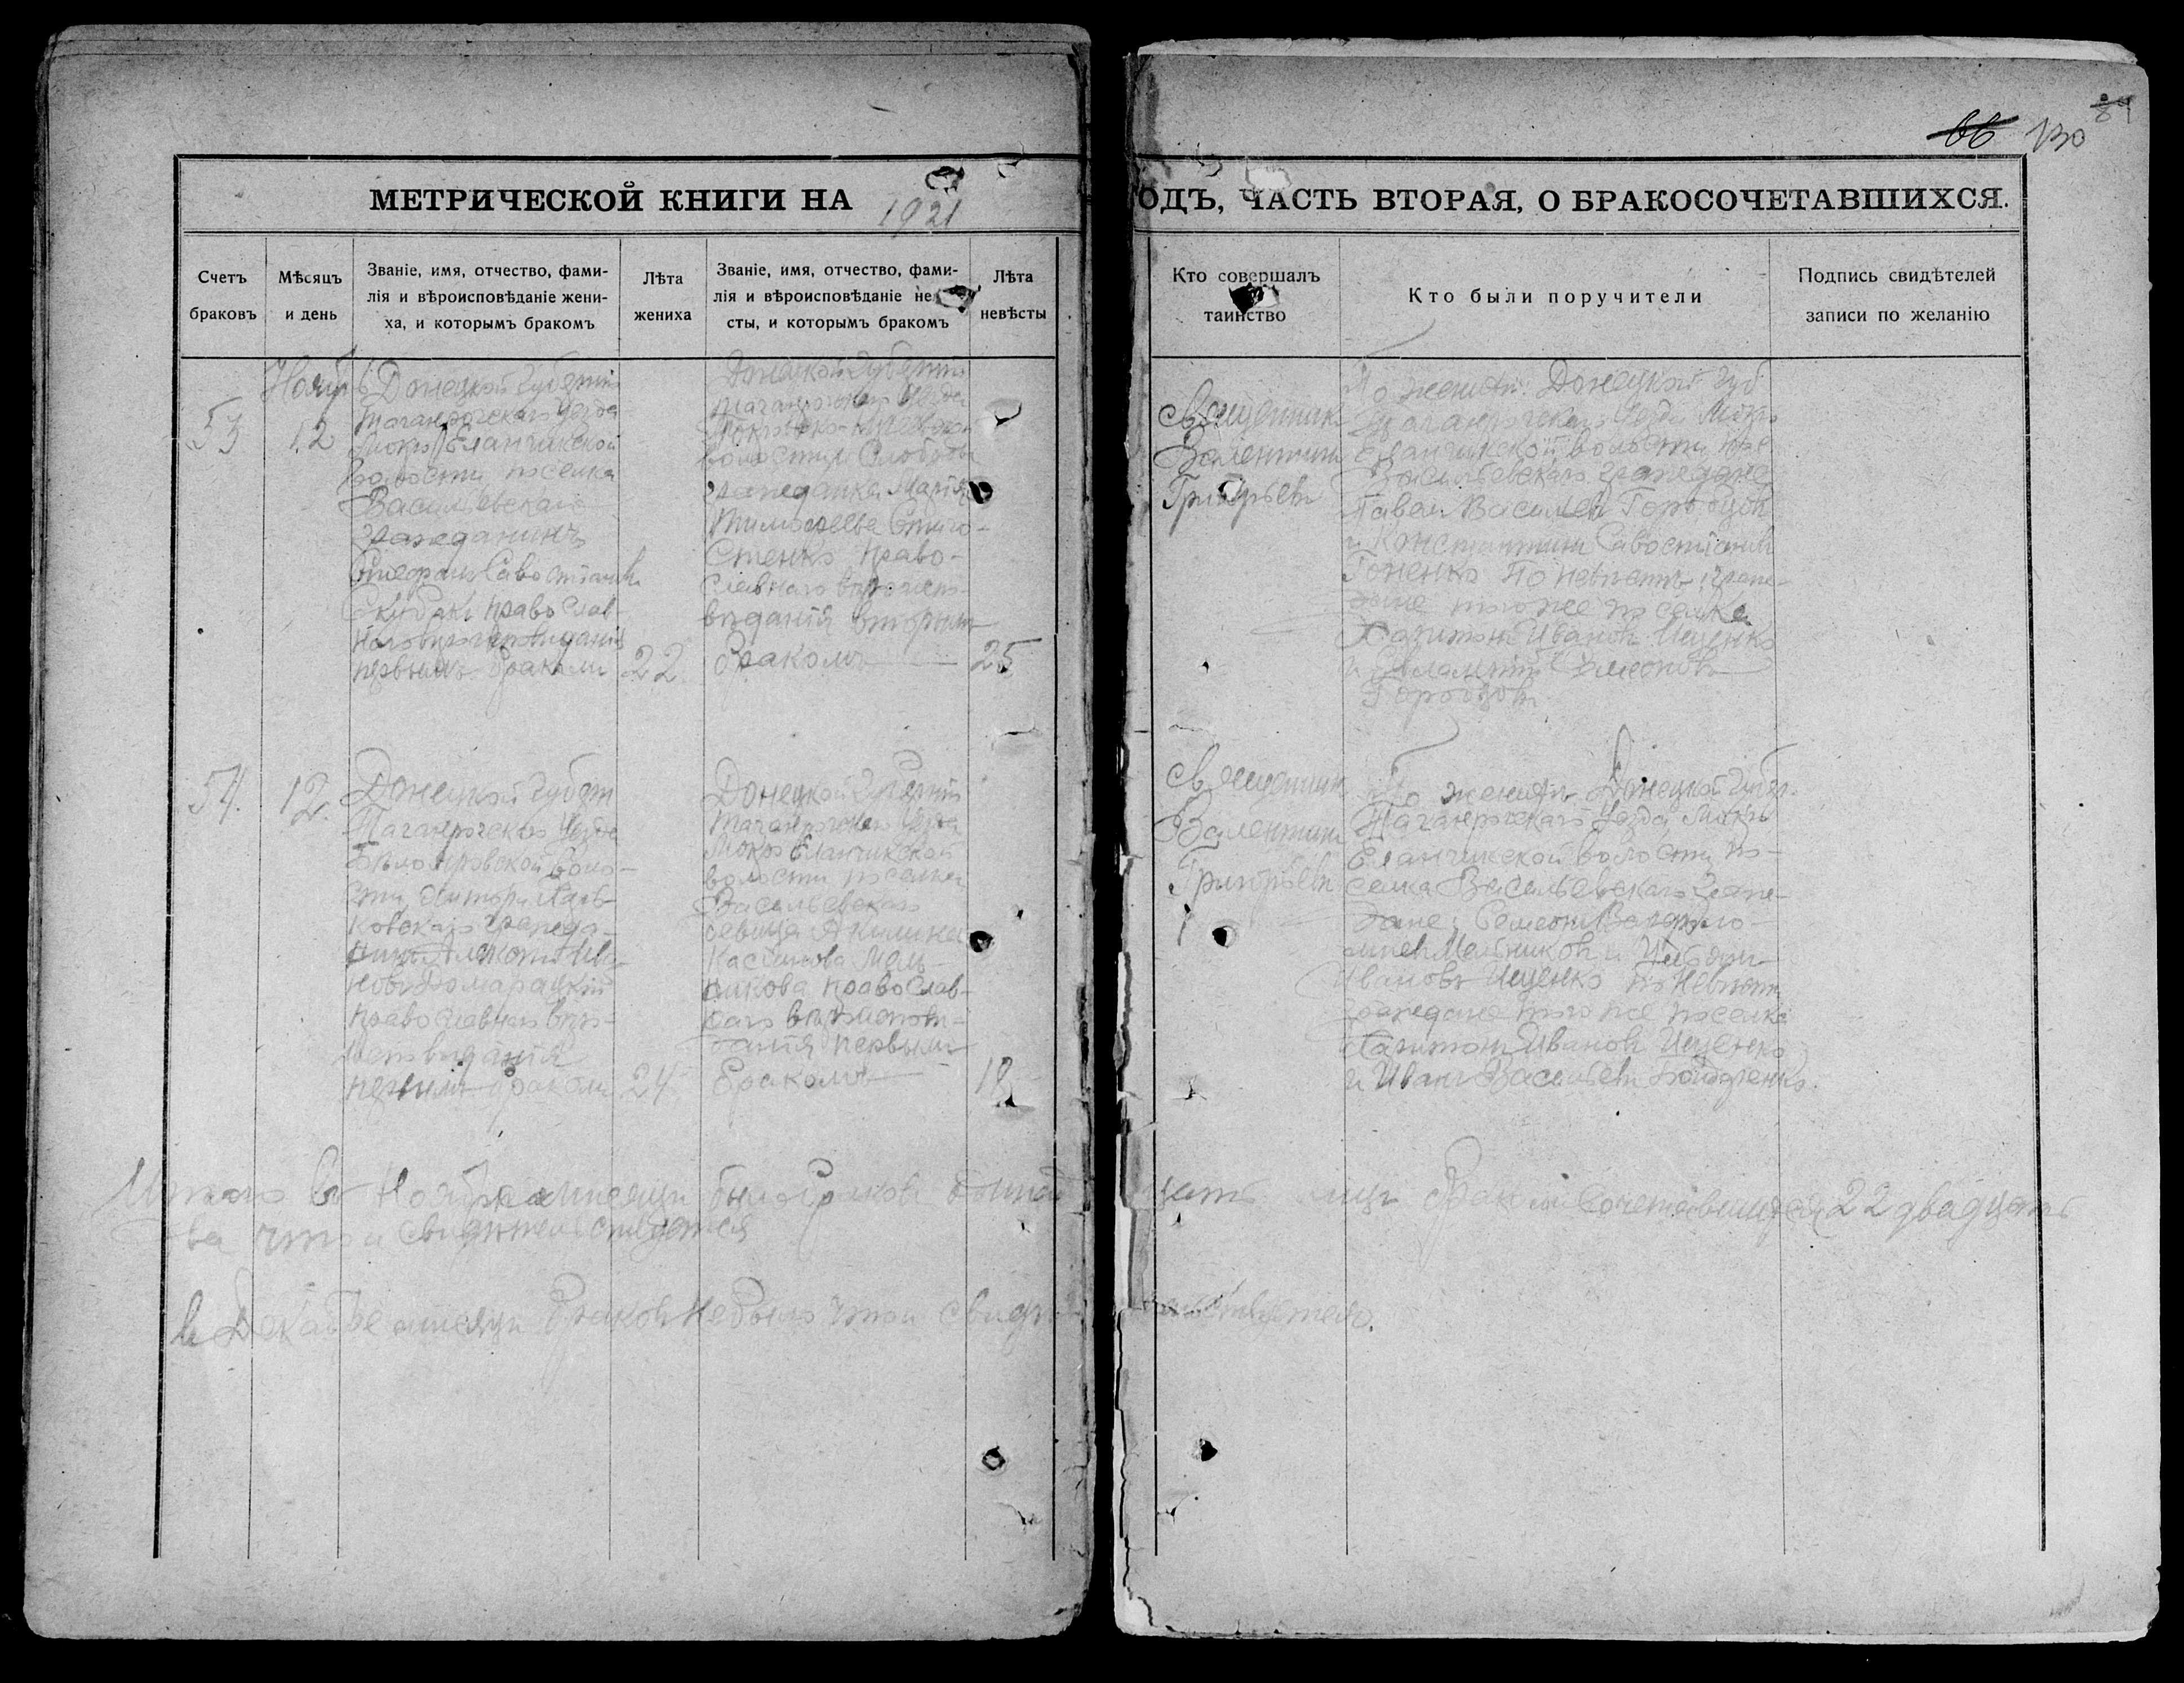 66 130 89
МЕТРИЧЕСКОЙ КНИГИ НА 1921
ОДЪ, ЧАСТЬ ВТОРАЯ, О БРАКОСОЧЕТАВШИХСЯ.
Счетъ
браковъ
Мѣсяцъ
и день
Званіе, имя, отчество, фами-
лія и вѣроисповѣданіе жени-
ха, и которымъ бракомъ
Лѣта
жениха
Званіе, имя, отчество, фами-
лія и вѣроисповѣданіе не
сты, и которымъ бракомъ
Лѣта
невѣсты
Кто совершалъ
таинство
Кто были поручители
Подпись свидѣтелей
записи по желанію
53
Ноябрь
12
Донецкой губерніи
Таганрогскаго уезда
Мокро Еланчикской
волости поселка
Васильевскаго
гражданинъ
Стефанъ Савостіановъ
православ-
наго вѣроисповиданія
первымъ бракомъ
22
Донецкой губерніи
Таганрогскаго уезда
волости Слободы
гражданка Марія
Тимофеева
Стенко право-
славнаго вѣроиспо-
вѣданія вторымъ
бракомъ
25
Священникъ
Валентинъ
Григорьевъ
По женихѣ: Донецкой губ
Таганрогскаго уезда Мокро
Еланчикской волости пос
Васильевскаго граждане
Павелъ Васильевъ Горобцовъ
и Константинъ Савостіановъ
Гоненко По невѣстѣ: граж-
дане того же поселка
Харитонъ Ивановъ Ищенко
и Семеновъ
Горобцовъ
54.
12.
Донецкой губерн
Таганрогскаго уезда
воло-
сти, хутора
ковскаго гражда-
нинъ Ива-
новъ Домарацкій
православнаго вѣро-
исповиданія
первымъ бракомъ
24
Донецкой губерніи
Таганрогскаго уезда
Мокро Еланчикской
волости поселка
Васильевскаго
девица Акилина
Касіянова Мель-
никова православ-
наго вѣроиспові-
данія первымъ
бракомъ
18
Священникъ
Валентинъ
Григорьевъ
По женихѣ Донецкой губер.
Таганрогскаго уезда, Мокро
Еланчикской волости по-
селка Васильевскаго граж-
дане: Семеонъ
Мельниковъ и
Ивановъ Ищенко по невѣстѣ
граждане того же поселка
Харитонъ Ивановъ Ищенко
и Иванъ Васильевъ
Итого въ Ноябрѣ мисяци было браковъ
цать лицъ Бракомъ сочетавшихся 22 двадцать
два что и свидѣтельствуется
въ Декабрѣ мисяци браковъ не было что и свидѣ-
тельствуется.